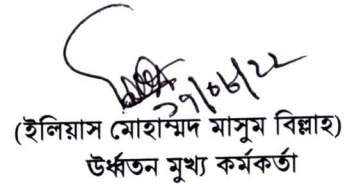 ২৭/০৬/২২
(ইলিয়াস মোহাম্মদ মাসুম বিল্লাহ)
ঊর্ধ্বতন মুখ্য কর্মকর্তা